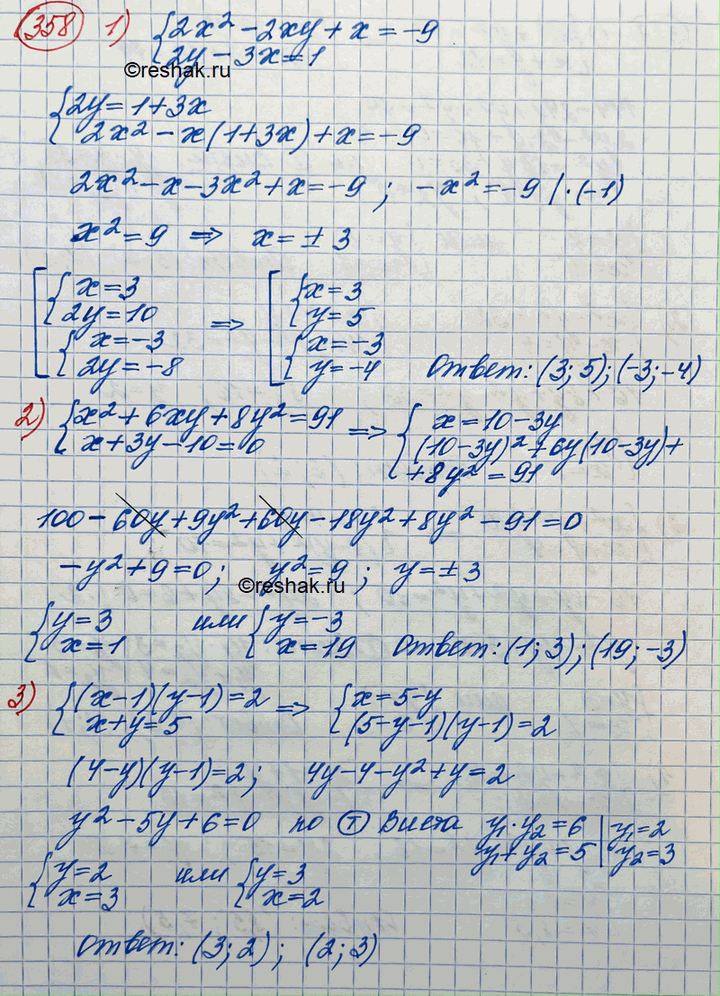 358 1) {2x² - 2xy + x = -9
{2y - 3x = 1
©reshak.ru
{2y = 1+3x
{2x² - x(1+3x) + x = -9
2x² - x - 3x² + x = -9 ; -x² = -9 | ·(-1)
x² = 9 ⇒ x = ± 3
[{x = 3
{2y = 10
{x = -3
{2y = -8
⇒
[{x = 3
{y = 5
{x = -3
{y = -4
Ответ: (3; 5); (-3; -4)
2) {x² + 6xy + 8y² = 91
{x + 3y - 10 = 0
⇒ {x = 10-3y
{(10-3y)² + 6y(10-3y) +
+ 8y² = 91
100 - 60y + 9y² + 60y - 18y² + 8y² - 91 = 0
-y² + 9 = 0; y² = 9 ; y = ± 3
©reshak.ru
{y = 3
{x = 1
или {y = -3
{x = 19
Ответ: (1; 3); (19; -3)
3) {(x-1)(y-1) = 2
{x+y = 5
⇒ {x = 5-y
{(5-y-1)(y-1) = 2
(4-y)(y-1) = 2; 4y - 4 - y² + y = 2
y² - 5y + 6 = 0 по Ⓣ Виета y₁·y₂ = 6 | y₁ = 2
y₁+y₂ = 5 | y₂ = 3
{y = 2
{x = 3
или {y = 3
{x = 2
Ответ: (3; 2) ; (2; 3)